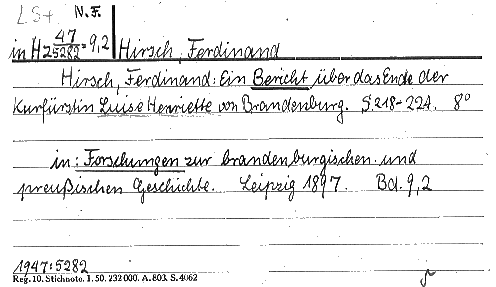 LS+ N.F.
in Hz 47/5282 = 9,2 Hirsch, Ferdinand
Hirsch, Ferdinand: Ein Bericht über das Ende der
Kurfürstin Luise Henriette von Brandenburg. S. 218-224. 8°
in: Forschungen zur brandenburgischen und
preußischen Geschichte. Leipzig 1897. Bd. 9,2
1947:5282
Reg. 10. Stichnote. 1. 50. 232000. A. 803. S. 4062